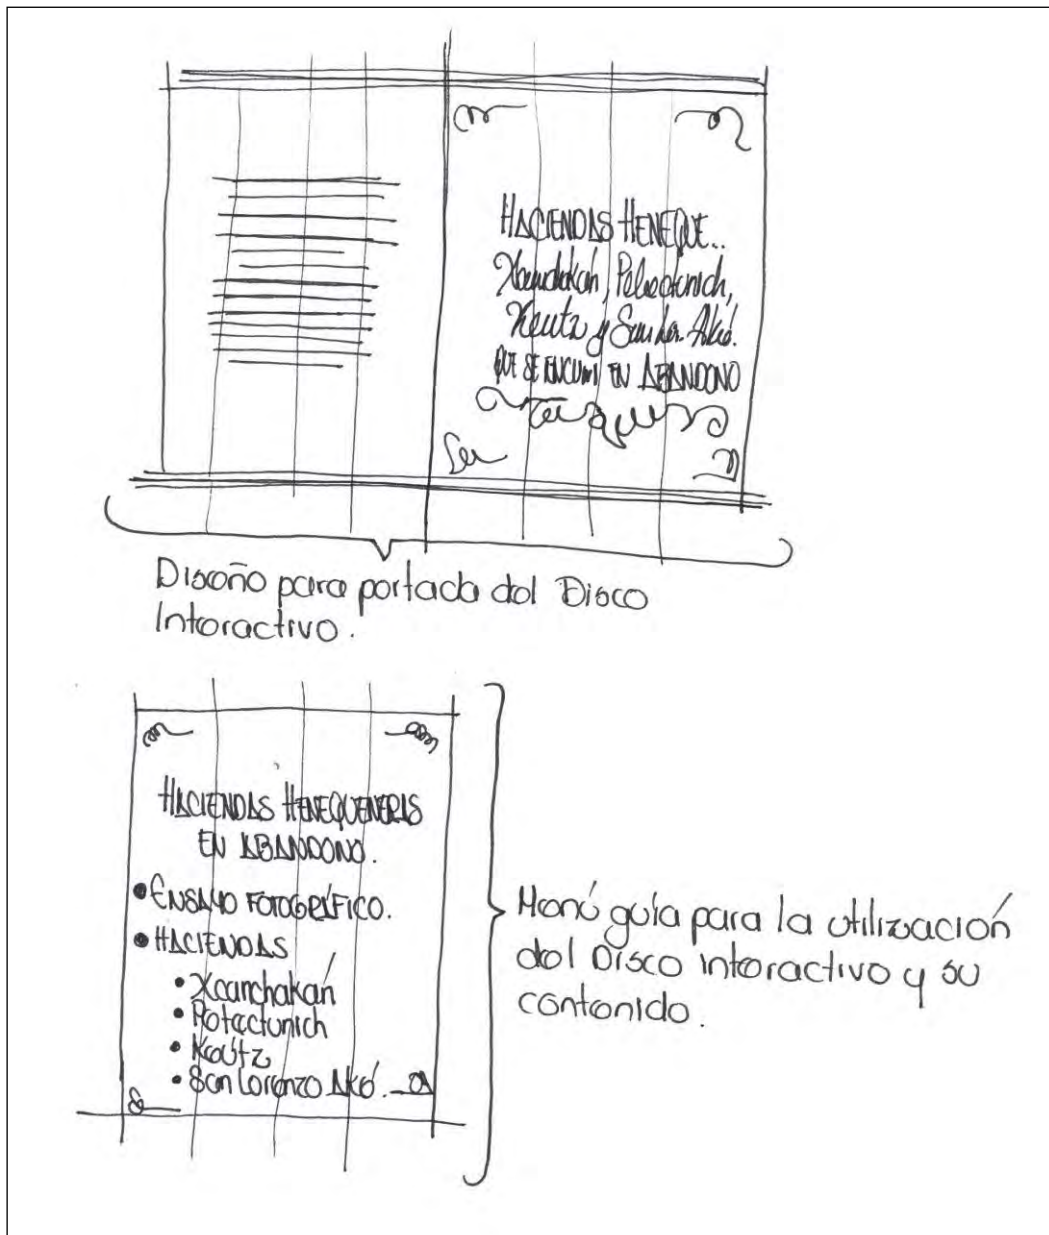 HACIENDAS HENEQUE...
QUE SE EN ABANDONO
Diseño para portada del Disco
Interactivo.
HACIENDAS HENEQUENERAS
EN ABANDONO.
• ENSAYO FOTOGRÁFICO.
• HACIENDAS
• Xcanchakán
• Potectunich
• Keútz
• San Lorenzo Aké.
Menú guía para la utilización
del Disco interactivo y su
contenido.